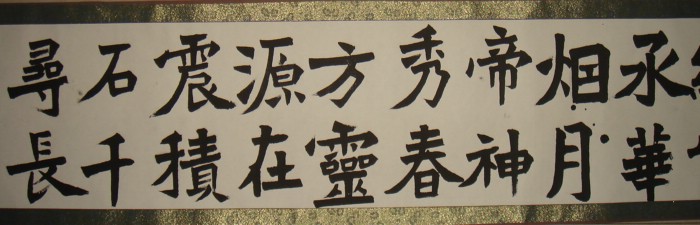 承華
烟月
帝神
秀春
方靈
源在
震積
石千
尋長